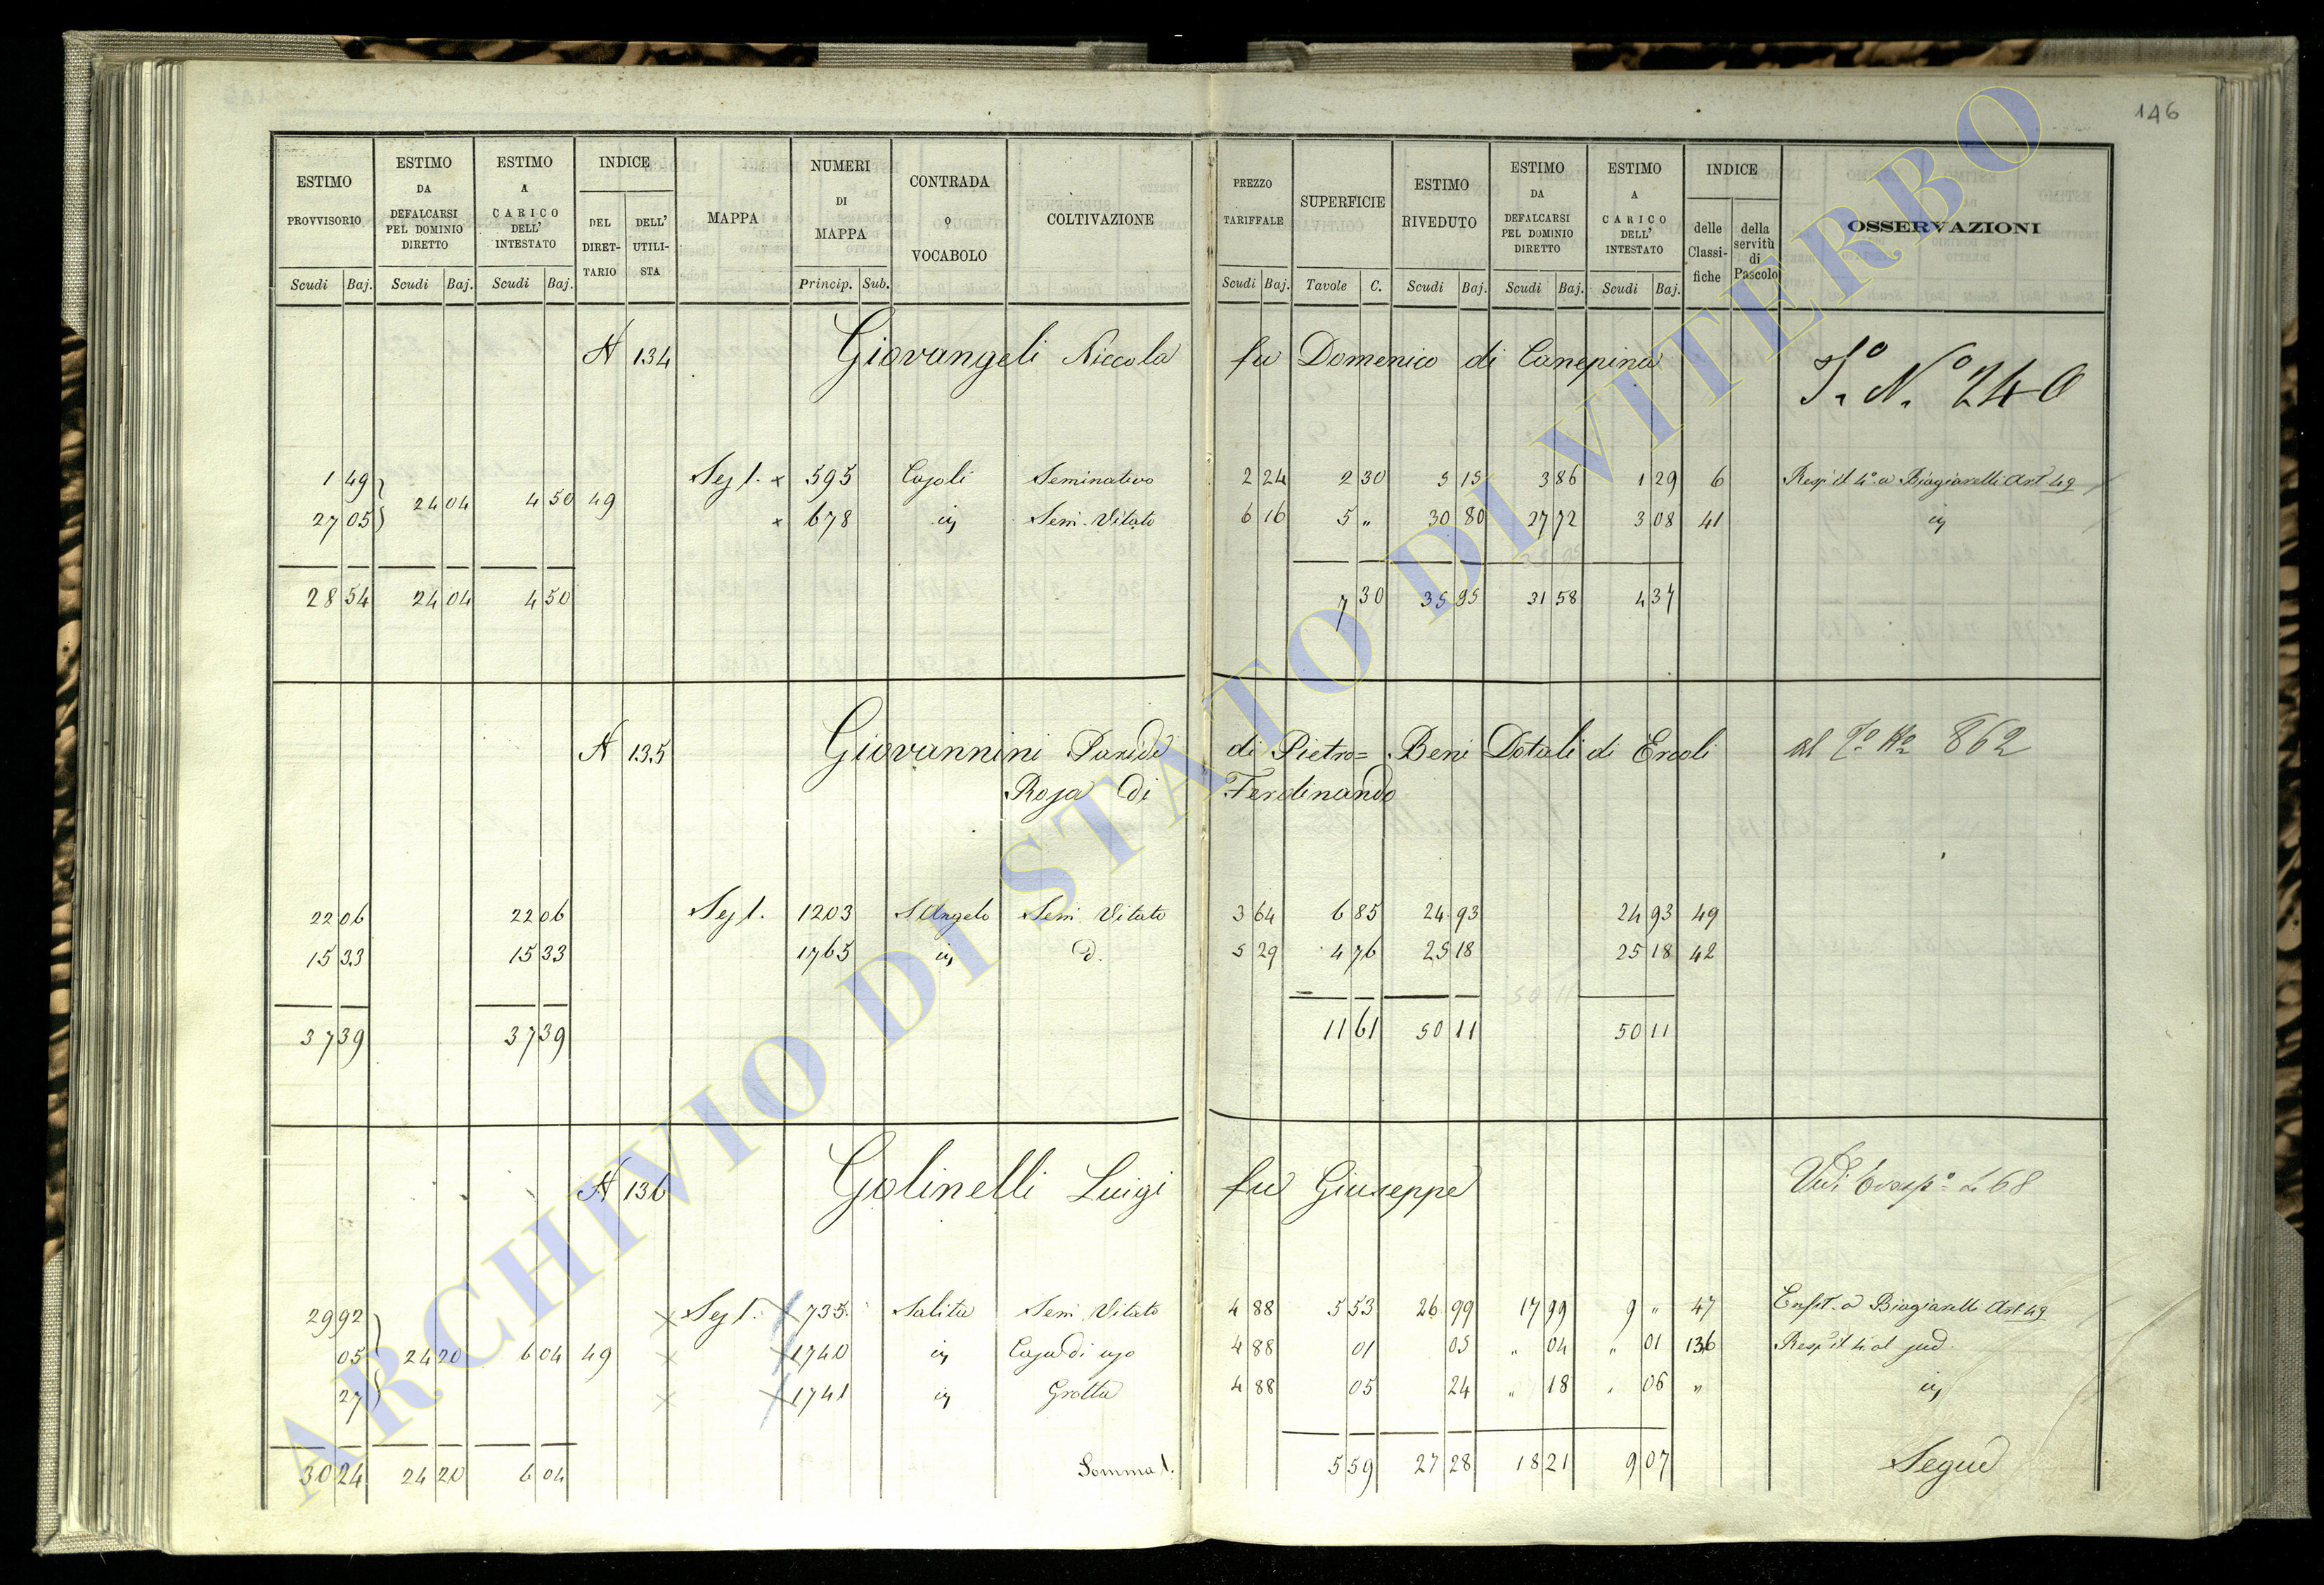 146
ESTIMO PROVVISORIO Scudi Baj. ESTIMO DA DEFALCARSI PEL DOMINIO DIRETTO Scudi Baj. ESTIMO A CARICO DELL' INTESTATO Scudi Baj. INDICE DEL DIRETTARIO DELL' UTILISTA MAPPA NUMERI DI MAPPA Princip. Sub. CONTRADA o VOCABOLO COLTIVAZIONE PREZZO TARIFFALE Scudi Baj. SUPERFICIE Tavole C. ESTIMO RIVEDUTO Scudi Baj. ESTIMO DA DEFALCARSI PEL DOMINIO DIRETTO Scudi Baj. ESTIMO A CARICO DELL' INTESTATO Scudi Baj. INDICE delle Classifiche della servitù di Pascolo OSSERVAZIONI
A 134 Giovangeli Niccola fu Domenico di Canepina N. 240
1 49 Sez 1. x 595 Seminativo 2 24 2 30 5 15 3 86 1 29 6 Biagiarelli Art 49
24 04 4 50 49
27 05 x 678 Sem. Vitato 6 16 5 " 30 80 27 72 3 08 41
28 54 24 04 4 50 7 30 35 95 31 58 4 37
A 135 Giovannini di Pietro= Beni Dotali di Ercoli 862
Rosa di Ferdinando
22 06 22 06 Sez 1. 1203 S. Angelo Sem Vitato 3 64 6 85 24 93 24 93 49
15 33 15 33 1765 d. 5 29 4 76 25 18 25 18 42
37 39 37 39 11 61 50 11 50 11
A 136 Golinelli Luigi fu Giuseppe
29 92 x Sez 1. x 735 Salita Sem Vitato 4 88 5 53 26 99 17 99 9 " 47 Enfit. a Biagiarelli Art. 49
05 24 20 6 04 49 x x 1740 Casa di uso 4 88 01 05 " 04 " 01 136
27 x x 1741 Grotta 4 88 05 24 " 18 " 06 "
30 24 24 20 6 04 Somma 1. 5 59 27 28 18 21 9 07 Segue
ARCHIVIO DI STATO DI VITERBO